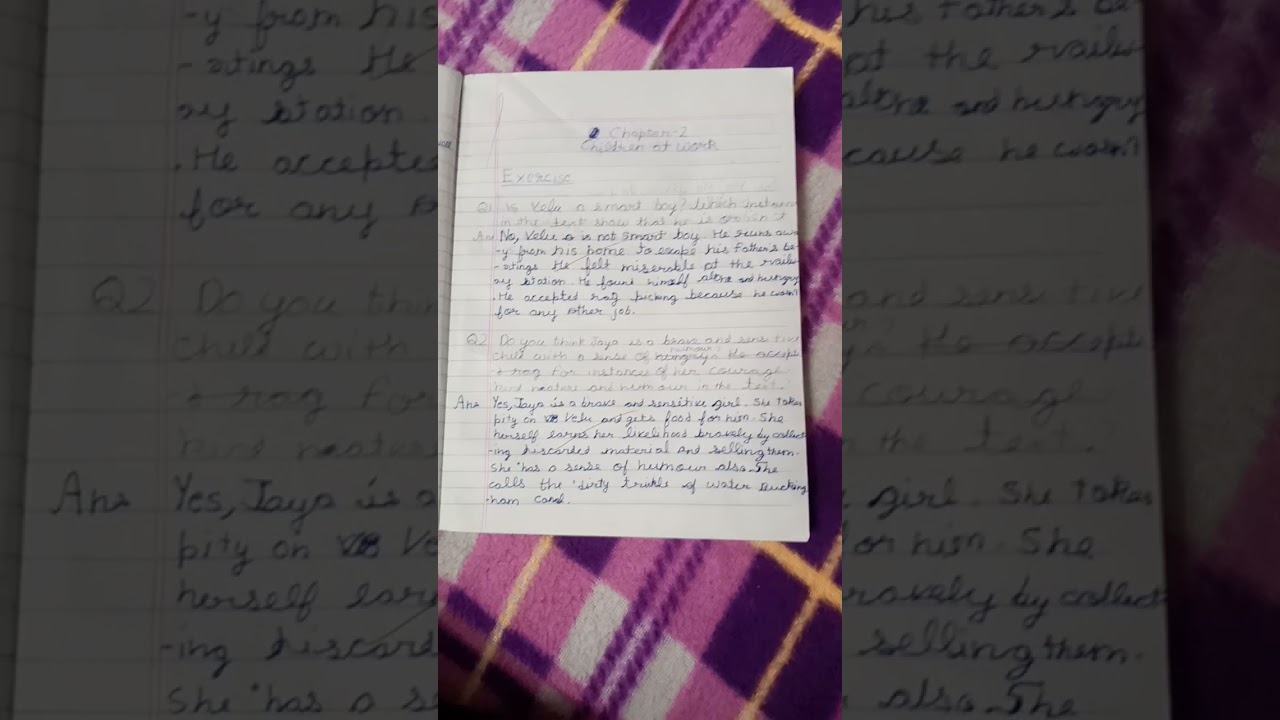 Chapter-2
Children at work
Exercise
Q1 Is Velu a smart boy? Which
in the text show that he is or
Ans No, Velu is not smart boy. He runs awa
-y from his home to escape his father's be-
-atings He felt miserable at the railw
ay station. He found himself alone and hungry
. He accepted rag picking because he wasn't
for any other job.
Q2 Do you think Jaya is a brave and sensitive
child with a sense of humour? He accept
rag for instances of her courage
kind nature and humour in the text.
Ans Yes, Jaya is a brave and sensitive girl. She takes
pity on Velu and gets food for him. She
herself earns her likelihood bravely by collect
-ing discarded material and selling them.
She has a sense of humour also. The
calls the dirty trickle of water Bucking
-ham Canal.